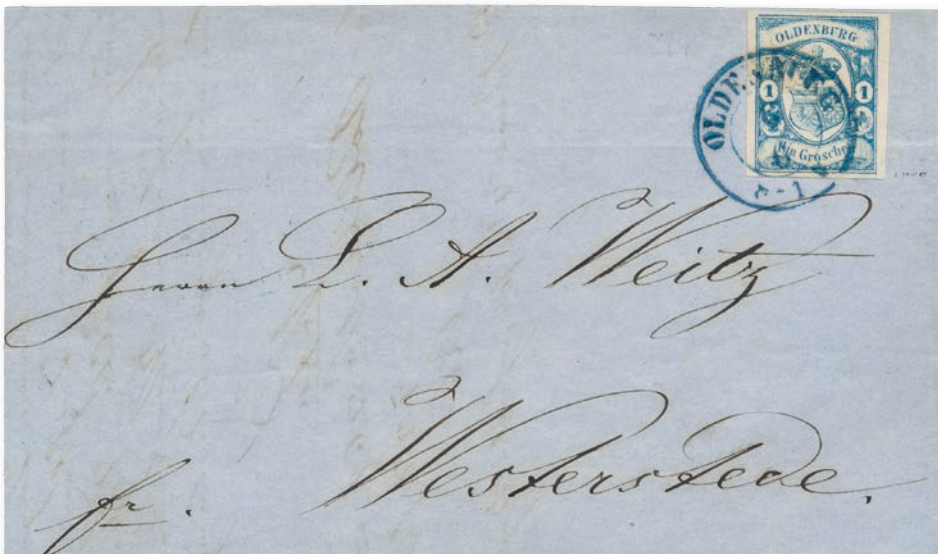 OLDENBURG
1 1
Ein Groschen
OLDENBURG
Herrn L. A. Weitz
Westerstede.
fr.